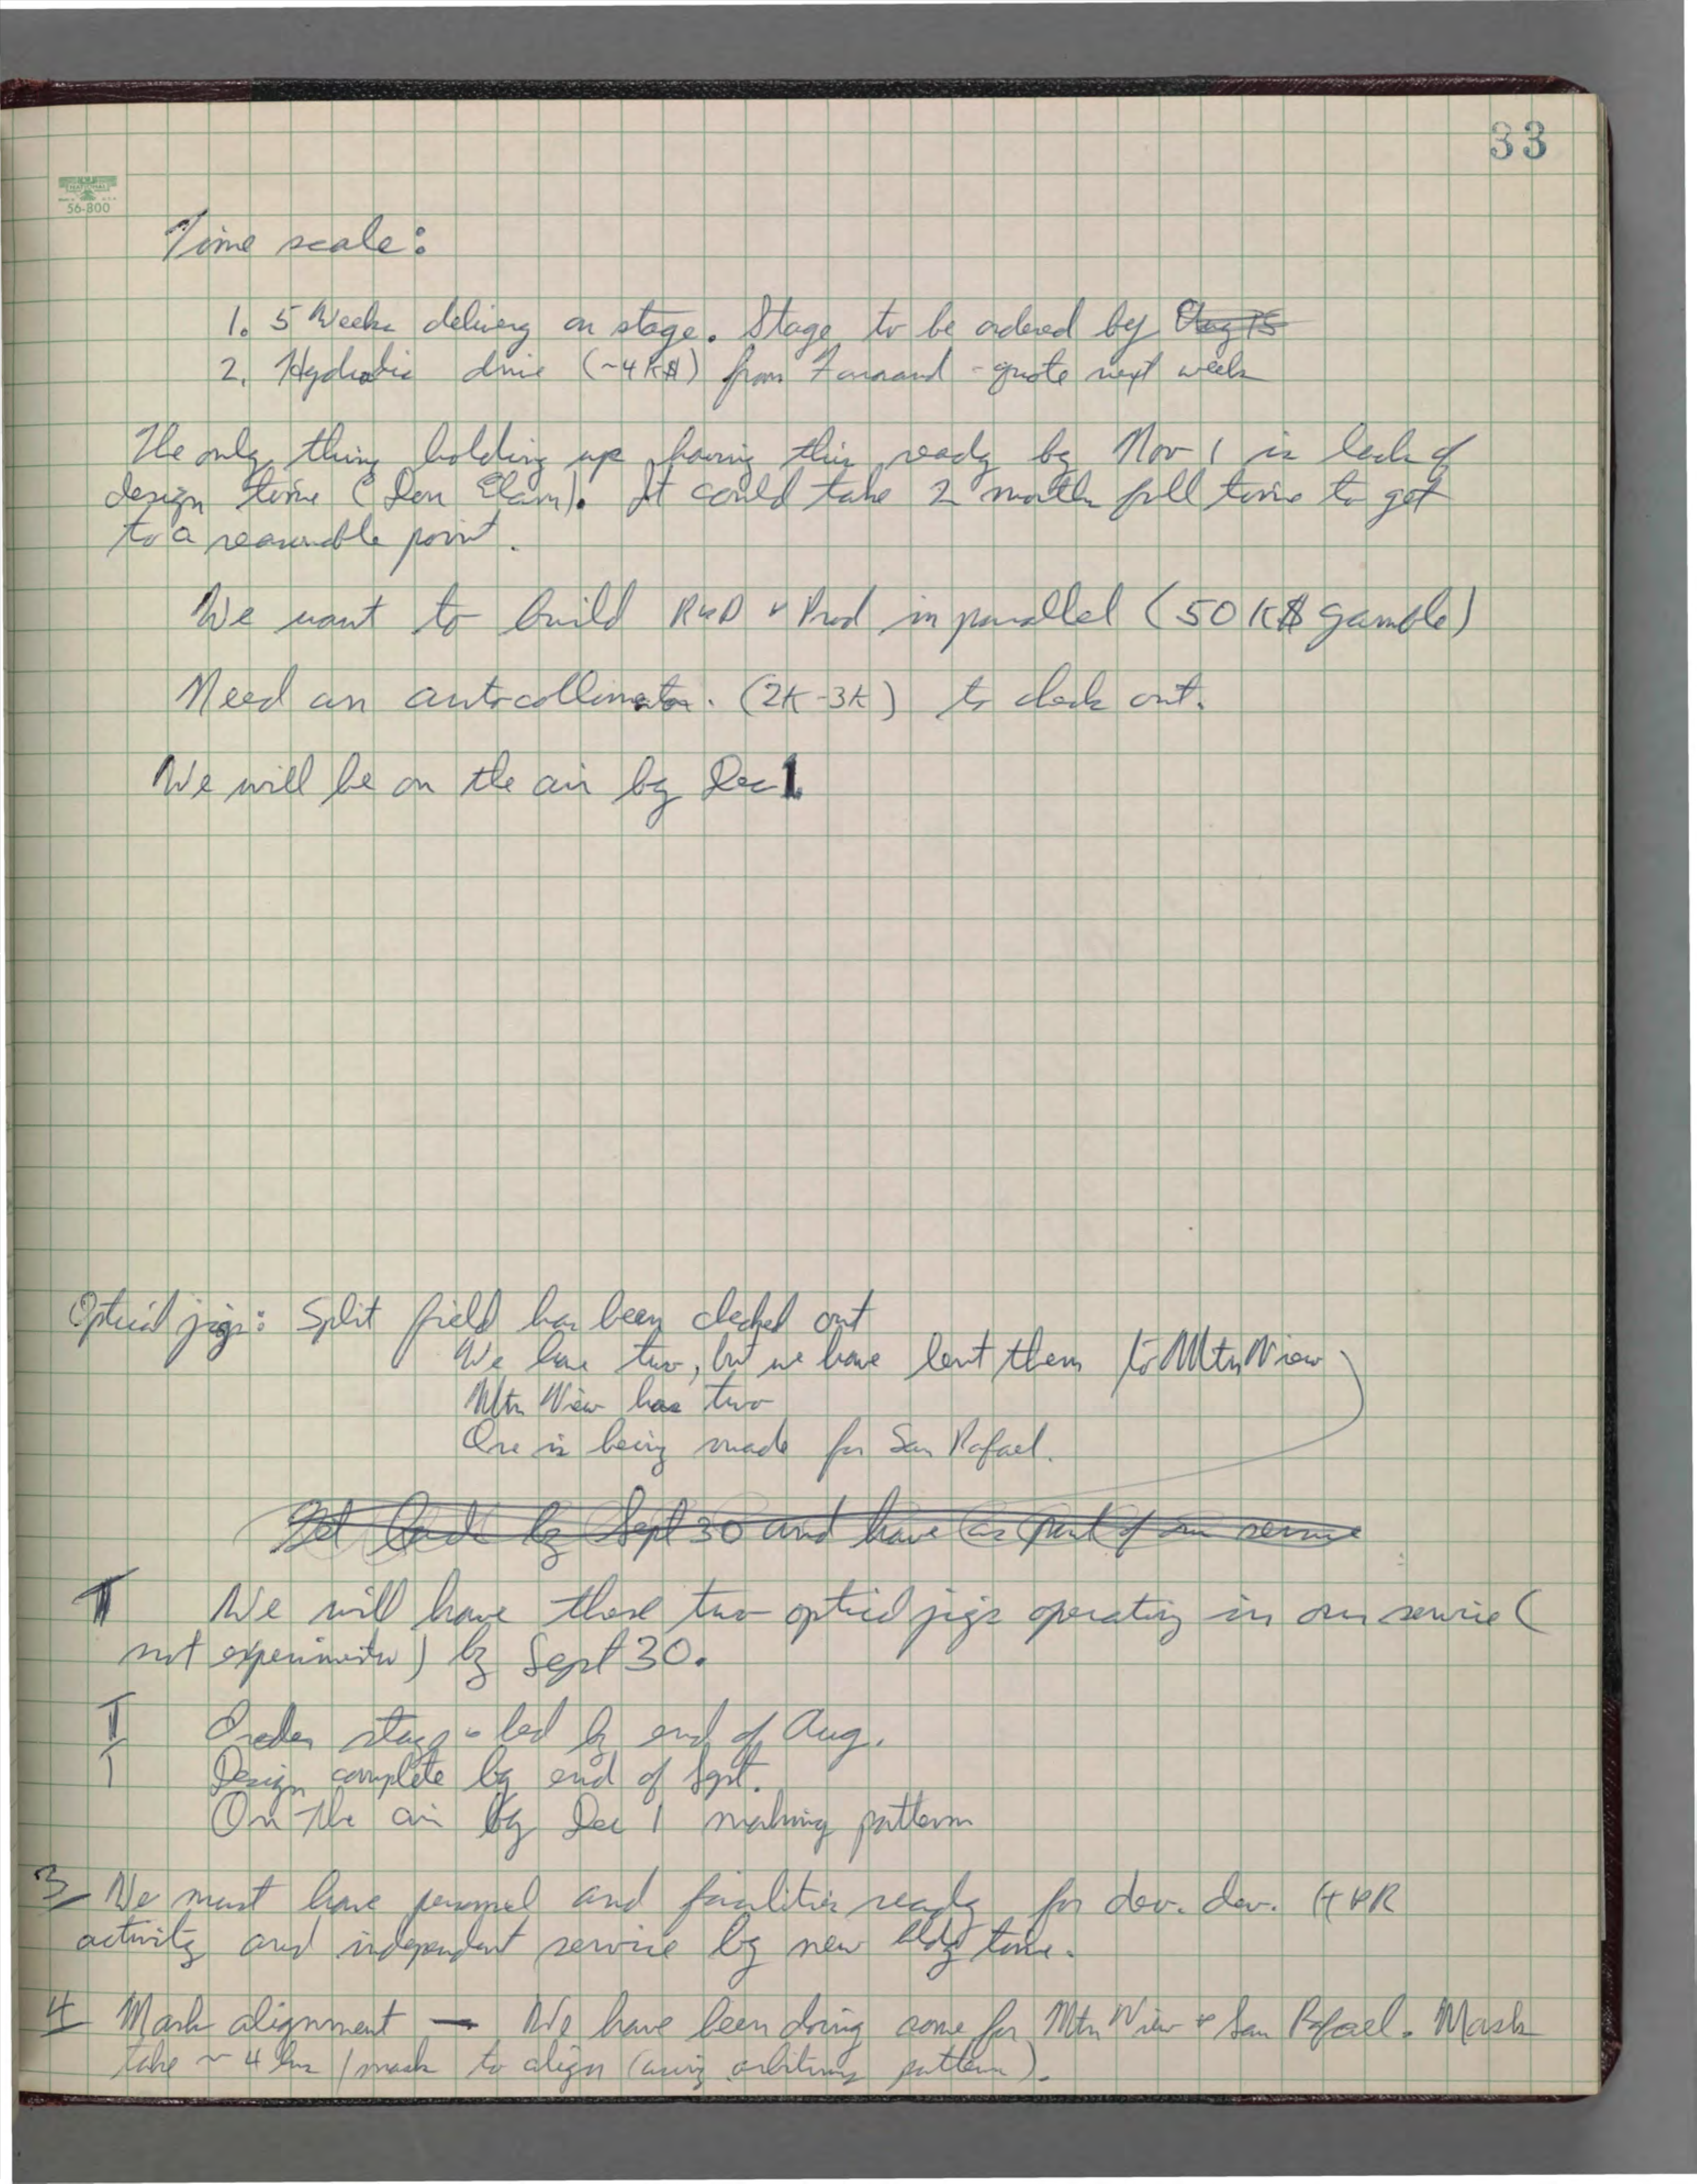 33
NATIONAL
56-800
Time scale:
1. 5 Weeks delivery on stage. Stage to be ordered by Aug 15
2. Hydraulic drive (~4K$) from Farrand - quote next week
The only thing holding up having this ready by Nov 1 is lack of
design time (Don Elam). It could take 2 months full time to get
to a reasonable point.
We want to build R&D & Prod in parallel (50K$ gamble)
Need an autocollimator. (2K-3K) to check out.
We will be on the air by Dec 1.
Optical jigs: Split field has been checked out
We have two, but we have lent them to Mtn View
Mtn View has two
One is being made for San Rafael.
Get back by Sept 30 and have as part of our service
T We will have these two optical jigs operating in our service (
not experimental) by Sept 30.
T Order stage & bed by end of Aug.
T Design complete by end of Sept.
On the air by Dec 1 making patterns
3 We must have personnel and facilities ready for dev. dev.
activity and independent service by new bldg time.
4 Mask alignment — We have been doing some for Mtn View & San Rafael. Masks
take ~ 4 hrs / mask to align (using arbitrary pattern).